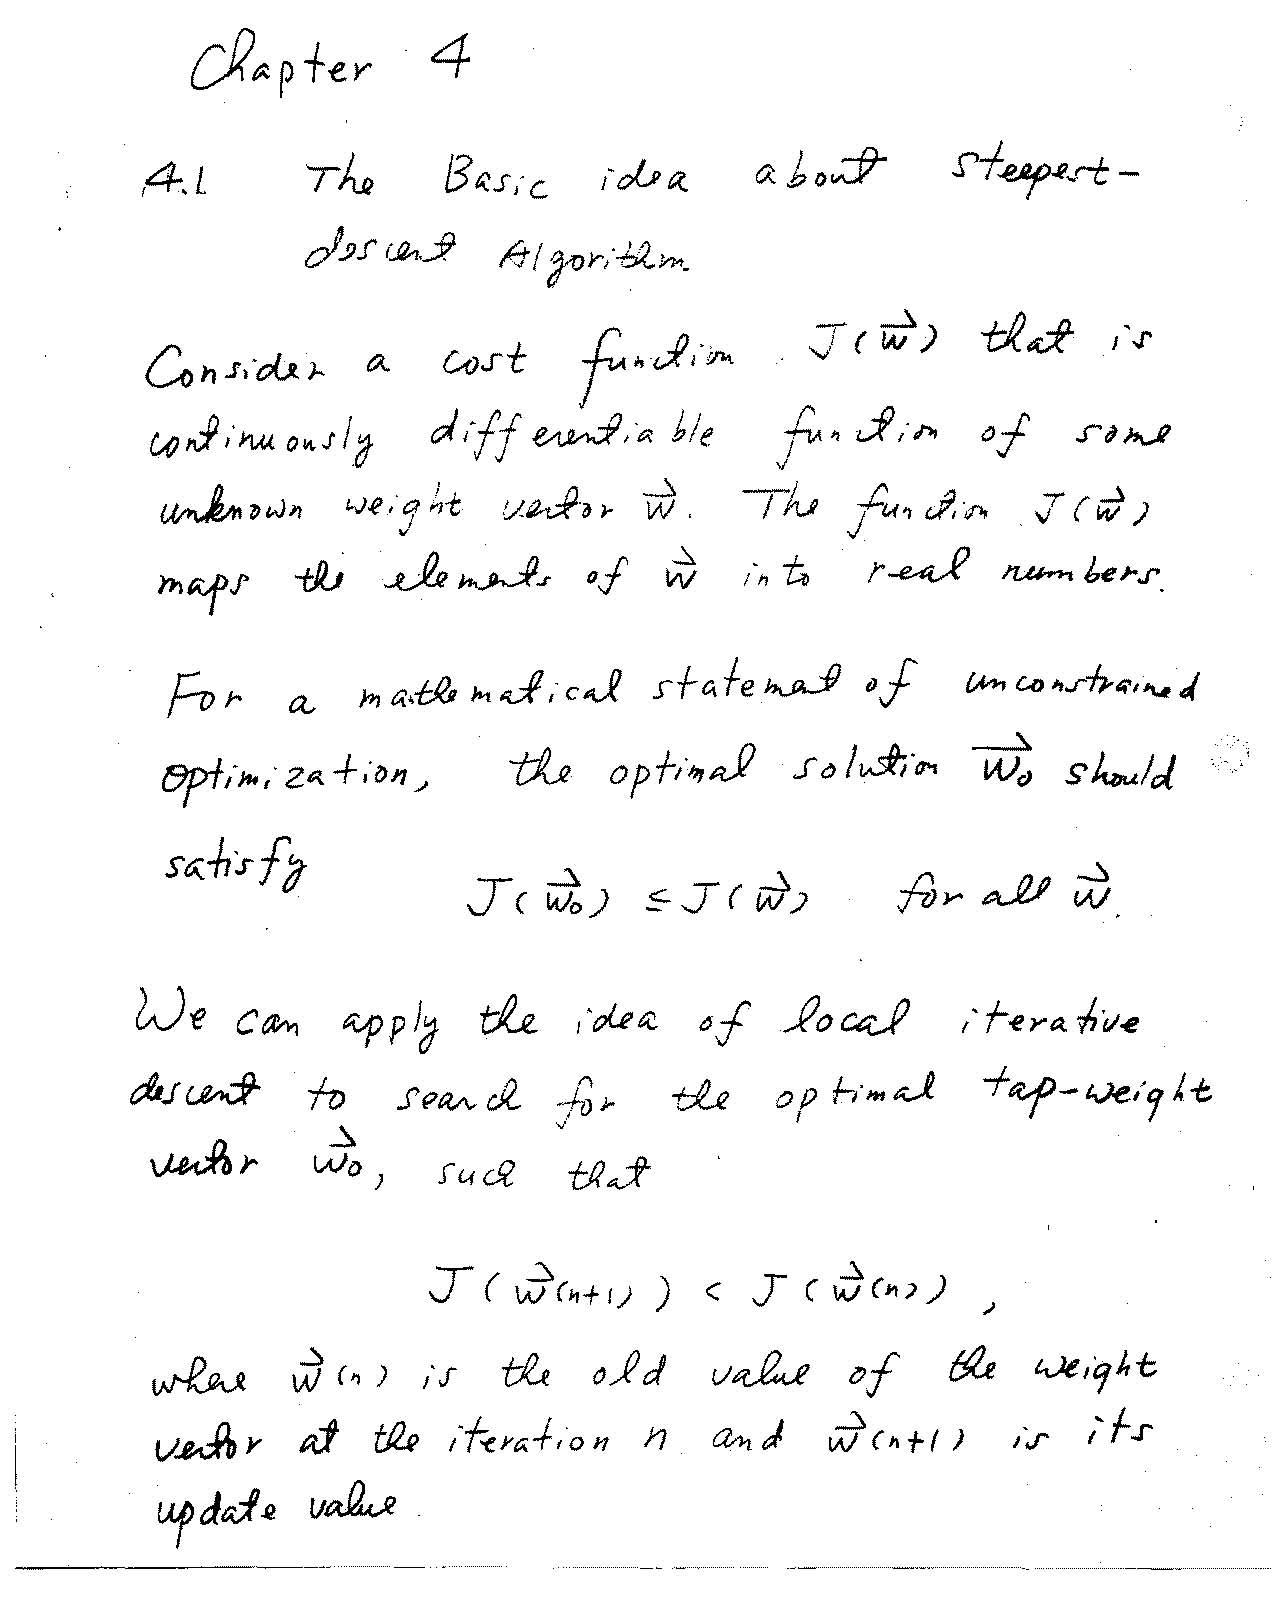 Chapter 4
4.1 The Basic idea about steepest-
descent Algorithm
Consider a cost function J(w⃗) that is
continuously differentiable function of some
unknown weight vector w⃗. The function J(w⃗)
maps the elements of w⃗ into real numbers.
For a mathematical statement of unconstrained
optimization, the optimal solution w⃗₀ should
satisfy
J(w⃗₀) ≤ J(w⃗) for all w⃗.
We can apply the idea of local iterative
descent to search for the optimal tap-weight
vector w⃗₀, such that
J(w⃗(n+1)) < J(w⃗(n)),
where w⃗(n) is the old value of the weight
vector at the iteration n and w⃗(n+1) is its
update value.